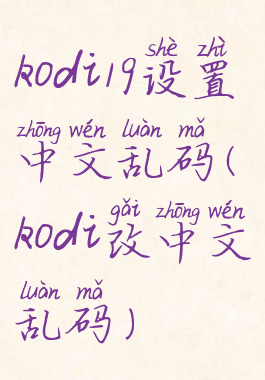 shè zhì
kodi19设置
zhōng wén luàn mǎ
中文乱码(
gǎi zhōng wén
kodi改中文
luàn mǎ
乱码)